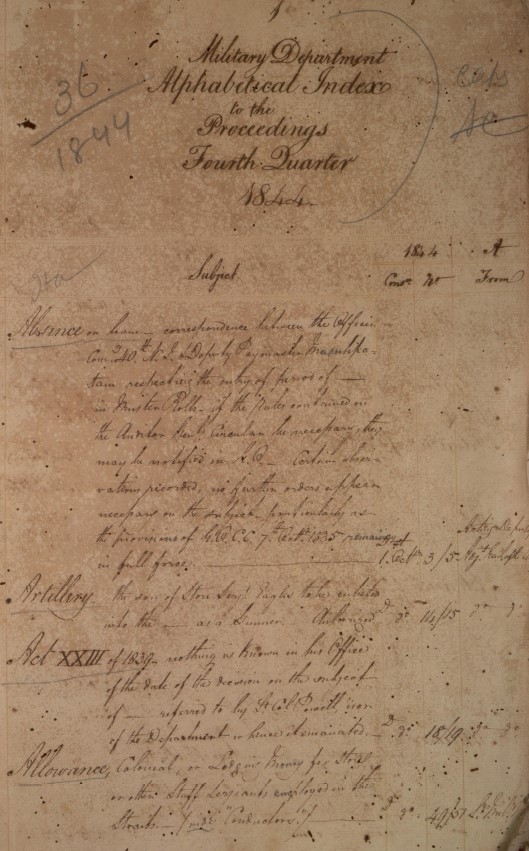 36
1844
Military Department
Alphabitical Index
to the
Proceedings
Fourth Quarter
1844.
1844 A
Subject Cons. No From
Absence on leave — correspondence between the Officer
Comg 40th N.I. & Deputy Paymaster Masulipa-
tam respecting the entry of period of —
in Muster Rolls — if the Rules contained in
the Auditor Genl's Circular be necessary they
may be notified in G.O. — Certain obser-
vations recorded, no further orders appear
necessary on the subject particularly as
the provisions of G.O.C.C. 7th Octr. 1835 remaining
in full force. 1. Octr 3/5.
Artillery the son of Store Serjt to be enlisted
into the — as a Authorized Do do 14/15 do do
Act XXIII of 1839 — nothing is known in his Office
of the date of the decision on the subject
of — referred to by Lt Col. nor
of the Department whence it emanated. Do do 18/19 do do
Allowance, Colonial, or Lodging Money for Store
or other Staff Serjeants employed in the
Straits — (vide "Conductors") do do 49/51